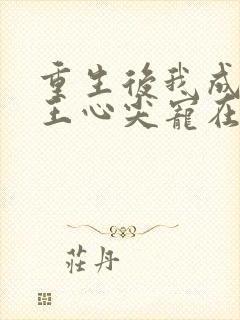 重生後我成
王心尖寵在
莊丹